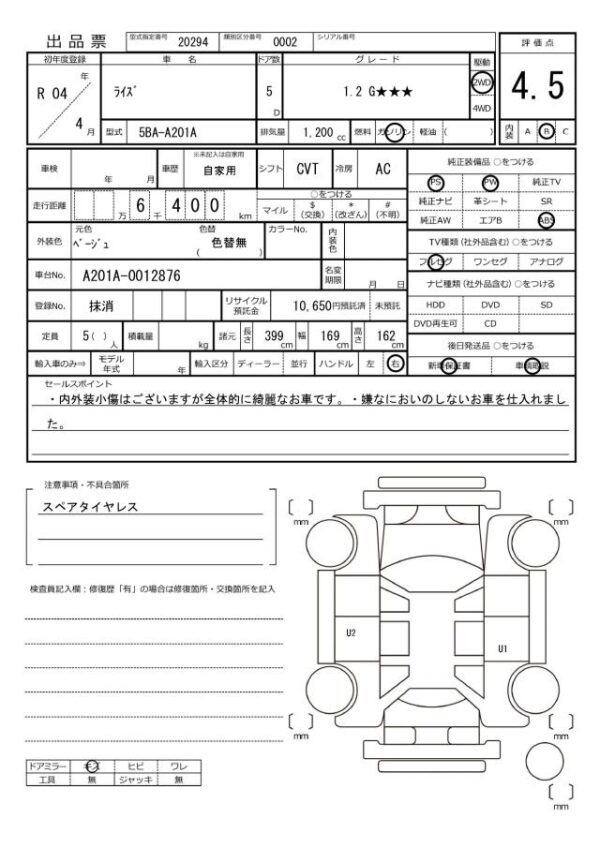 出品票 型式指定番号 20294 類別区分番号 0002 シリアル番号
評価点
4.5
内装 A B C
初年度登録 車名 ドア数 グレード 駆動
R 04 年 4 月 ライズ 5 D 1.2 G★★★ 2WD 4WD
型式 5BA-A201A 排気量 1,200 cc 燃料 ガソリン 軽油 ( )
車検 年 月 車歴 ※未記入は自家用 自家用 シフト CVT 冷房 AC
走行距離 万 6 千 4 0 0 km
○をつける
マイル $(交換) *(改ざん) #(不明)
外装色 元色 ベージュ 色替 色替無 ( ) カラーNo. 内装色
車台No. A201A-0012876 名変期限 月 日
登録No. 抹消 リサイクル預託金 10,650円預託済 未預託
定員 5( )人 積載量 kg 諸元 長さ 399cm 幅 169cm 高さ 162cm
輸入車のみ⇒ モデル年式 年 輸入区分 ディーラー 並行 ハンドル 左 右
純正装備品 ○をつける
PS PW 純正TV
純正ナビ 革シート SR
純正AW エアB ABS
TV種類 (社外品含む) ○をつける
フルセグ ワンセグ アナログ
ナビ種類 (社外品含む) ○をつける
HDD DVD SD
DVD再生可 CD
後日発送品 ○をつける
新車保証書 車輌取説
セールスポイント
・内外装小傷はございますが全体的に綺麗なお車です。・嫌なにおいのしないお車を仕入れまし
た。
注意事項・不具合箇所
スペアタイヤレス
検査員記入欄：修復歴「有」の場合は修復箇所・交換箇所を記入
ドアミラー キズ ヒビ ワレ
工具 無 ジャッキ 無
[ ] mm
[ ] mm
U2
U1
[ ] mm
[ ] mm
[ ] mm